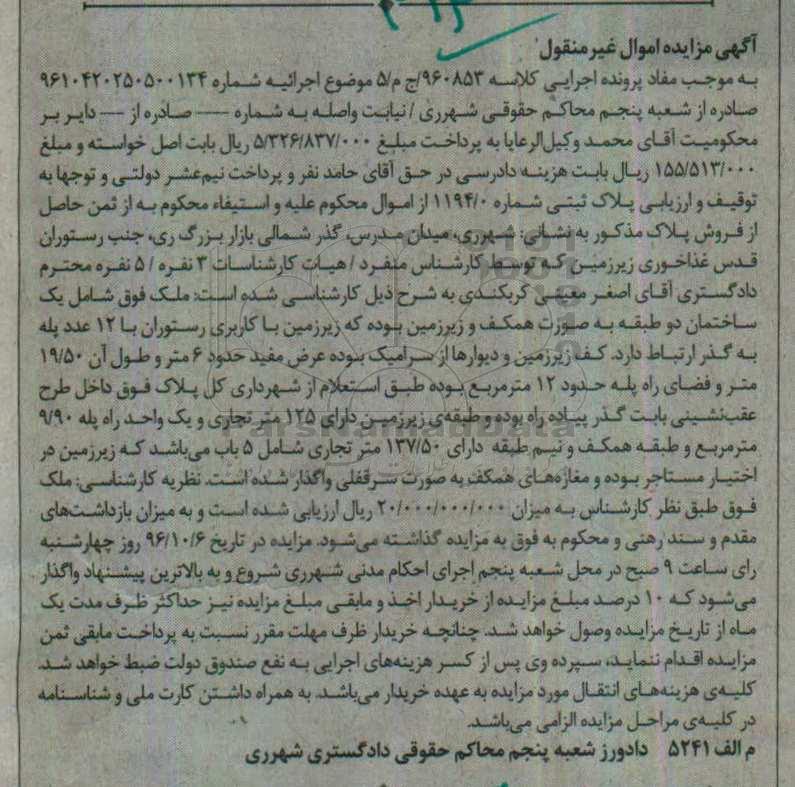 آگهی مزایده اموال غیرمنقول
به موجب مفاد پرونده اجرایی کلاسه ۹۶۰۸۵۳/ج م/۵ موضوع اجرائیه شماره ۹۶۱۰۴۲۰۲۵۰۵۰۰۱۳۴
صادره از شعبه پنجم محاکم حقوقی شهرری / نیابت واصله به شماره ---- صادره از --- دایر بر
محکومیت آقای محمد وکیل‌الرعایا به پرداخت مبلغ ۵/۳۲۶/۸۳۷/۰۰۰ ریال بابت اصل خواسته و مبلغ
۱۵۵/۵۱۳/۰۰۰ ریال بابت هزینه دادرسی در حق آقای حامد نفر و پرداخت نیم‌عشر دولتی و توجها به
توقیف و ارزیابی پلاک ثبتی شماره ۱۱۹۴/۰ از اموال محکوم علیه و استیفاء محکوم به از ثمن حاصل
از فروش پلاک مذکور به نشانی: شهرری، میدان مدرس، گذر شمالی بازار بزرگ ری، جنب رستوران
قدس غذاخوری زیرزمین که توسط کارشناس منفرد / هیات کارشناسات ۳ نفره / ۵ نفره محترم
دادگستری آقای اصغر معینی کربکندی به شرح ذیل کارشناسی شده است: ملک فوق شامل یک
ساختمان دو طبقه به صورت همکف و زیرزمین بوده که زیرزمین با کاربری رستوران با ۱۲ عدد پله
به گذر ارتباط دارد. کف زیرزمین و دیوارها از سرامیک بوده عرض مفید حدود ۶ متر و طول آن ۱۹/۵۰
متر و فضای راه پله حدود ۱۲ مترمربع بوده طبق استعلام از شهرداری کل پلاک فوق داخل طرح
عقب‌نشینی بابت گذر پیاده راه بوده و طبقه‌ی زیرزمین دارای ۱۲۵ متر تجاری و یک واحد راه پله ۹/۹۰
مترمربع و طبقه همکف و نیم طبقه دارای ۱۳۷/۵۰ متر تجاری شامل ۵ باب می‌باشد که زیرزمین در
اختیار مستاجر بوده و مغازه‌های همکف به صورت سرقفلی واگذار شده است. نظریه کارشناسی: ملک
فوق طبق نظر کارشناس به میزان ۲۰/۰۰۰/۰۰۰/۰۰۰ ریال ارزیابی شده است و به میزان بازداشت‌های
مقدم و سند رهنی و محکوم به فوق به مزایده گذاشته می‌شود. مزایده در تاریخ ۹۶/۱۰/۶ روز چهارشنبه
رای ساعت ۹ صبح در محل شعبه پنجم اجرای احکام مدنی شهرری شروع و به بالاترین پیشنهاد واگذار
می‌شود که ۱۰ درصد مبلغ مزایده از خریدار اخذ و مابقی مبلغ مزایده نیز حداکثر ظرف مدت یک
ماه از تاریخ مزایده وصول خواهد شد. چنانچه خریدار ظرف مهلت مقرر نسبت به پرداخت مابقی ثمن
مزایده اقدام ننماید، سپرده وی پس از کسر هزینه‌های اجرایی به نفع صندوق دولت ضبط خواهد شد.
کلیه‌ی هزینه‌های انتقال مورد مزایده به عهده خریدار می‌باشد. به همراه داشتن کارت ملی و شناسنامه
در کلیه‌ی مراحل مزایده الزامی می‌باشد.
م الف ۵۲۴۱ دادورز شعبه پنجم محاکم حقوقی دادگستری شهرری